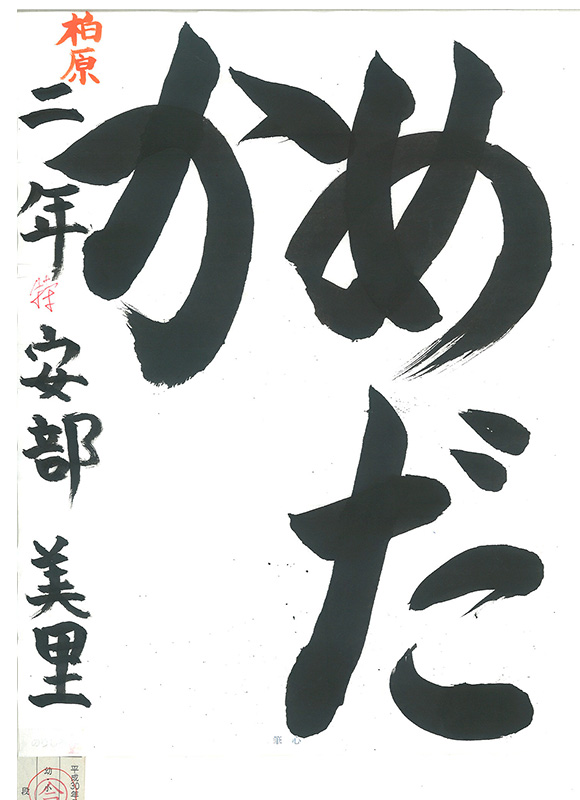 めだ
か
柏原
二年 安部 美里
特
筆心
平成30年
幼小
段